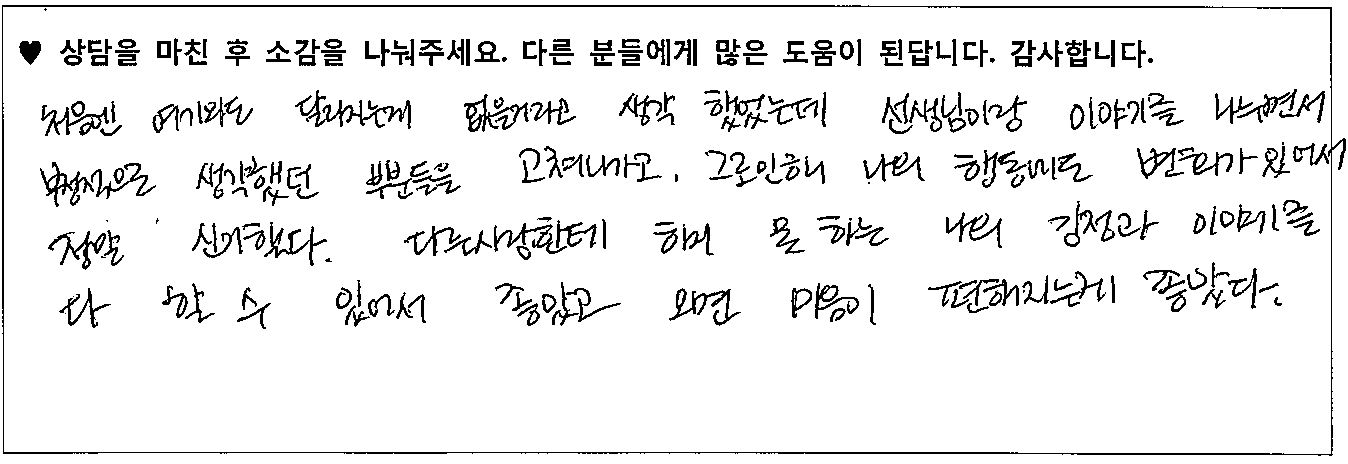 ♥ 상담을 마친 후 소감을 나눠주세요. 다른 분들에게 많은 도움이 된답니다. 감사합니다.
처음엔 여기와도 달라지는게 없을거라고 생각 했었는데 선생님이랑 이야기를 나누면서
부정적으로 생각했던 부분들을 고쳐나가고, 그로인해 나의 행동에도 변화가 있어서
정말 신기했다. 다른사람한테 하지 못 하는 나의 감정과 이야기를
다 할 수 있어서 좋았고 오면 마음이 편해지는게 좋았다.